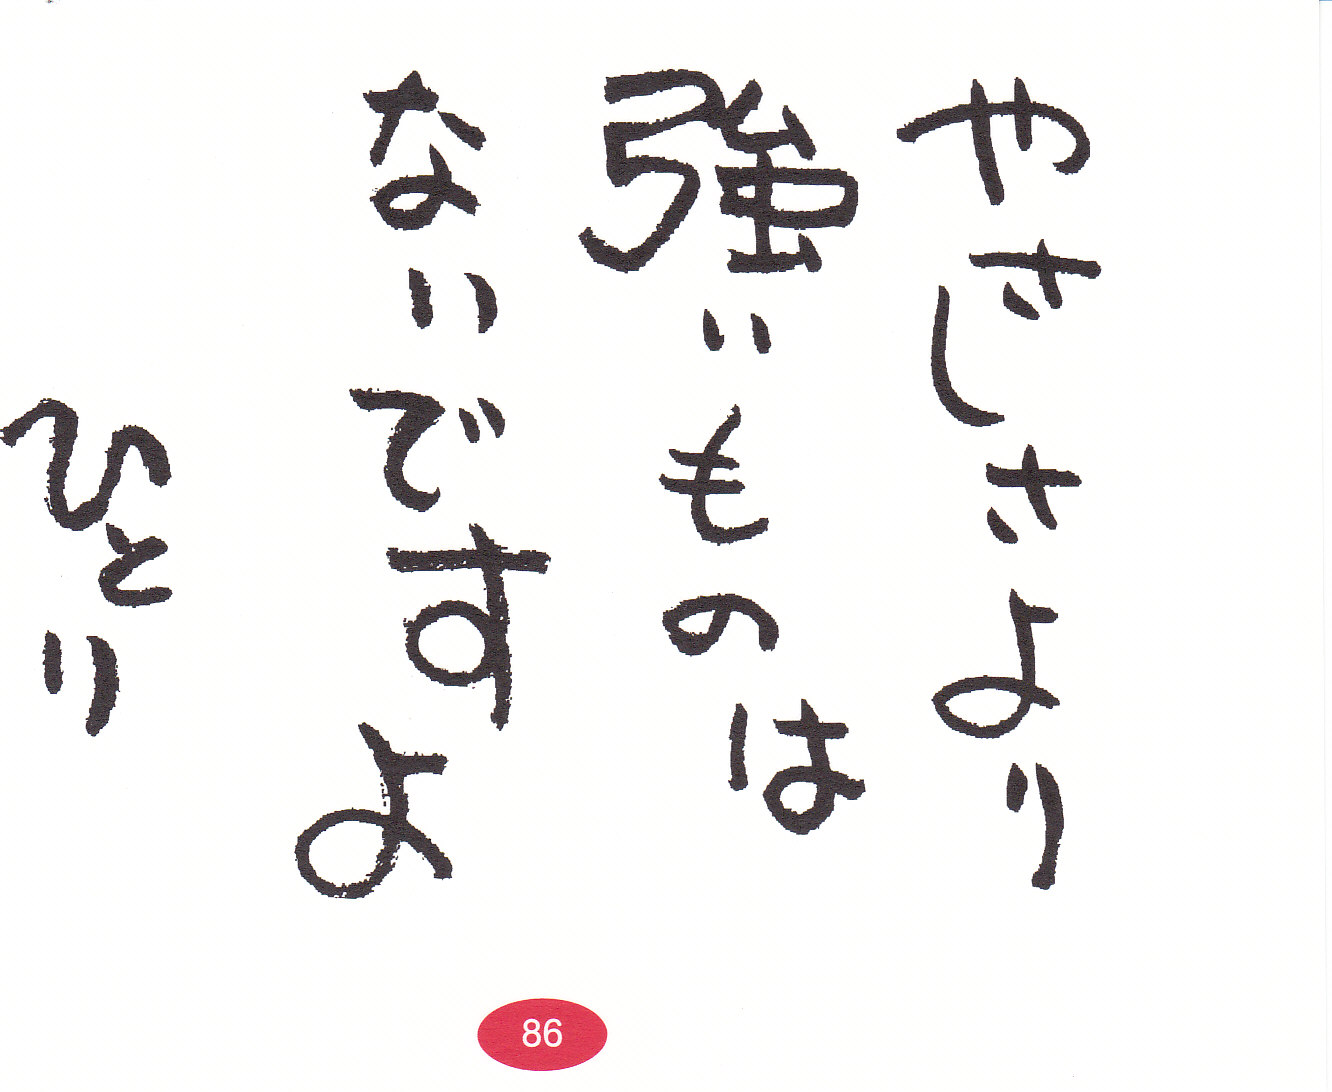 やさしさより
強いものは
ないですよ
ひとり
86